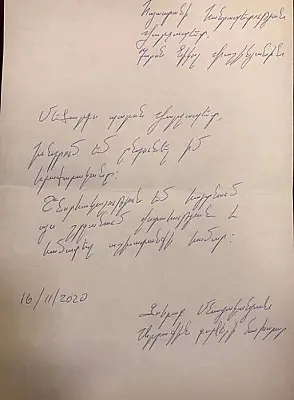 Հայաստանի Հանրապետության
Վարչապետ
Պարոն Նիկոլ Փաշինյանին
Մեծարգո պարոն Վարչապետ,
Խնդրում եմ ընդունել իմ
հրաժարականը:
Շնորհակալություն եմ հայտնում
այս շրջանում վստահության և
համատեղ աշխատանքի համար:
16/11/2020
Զոհրաբ Մնացականյան
Արտաքին գործերի նախարար